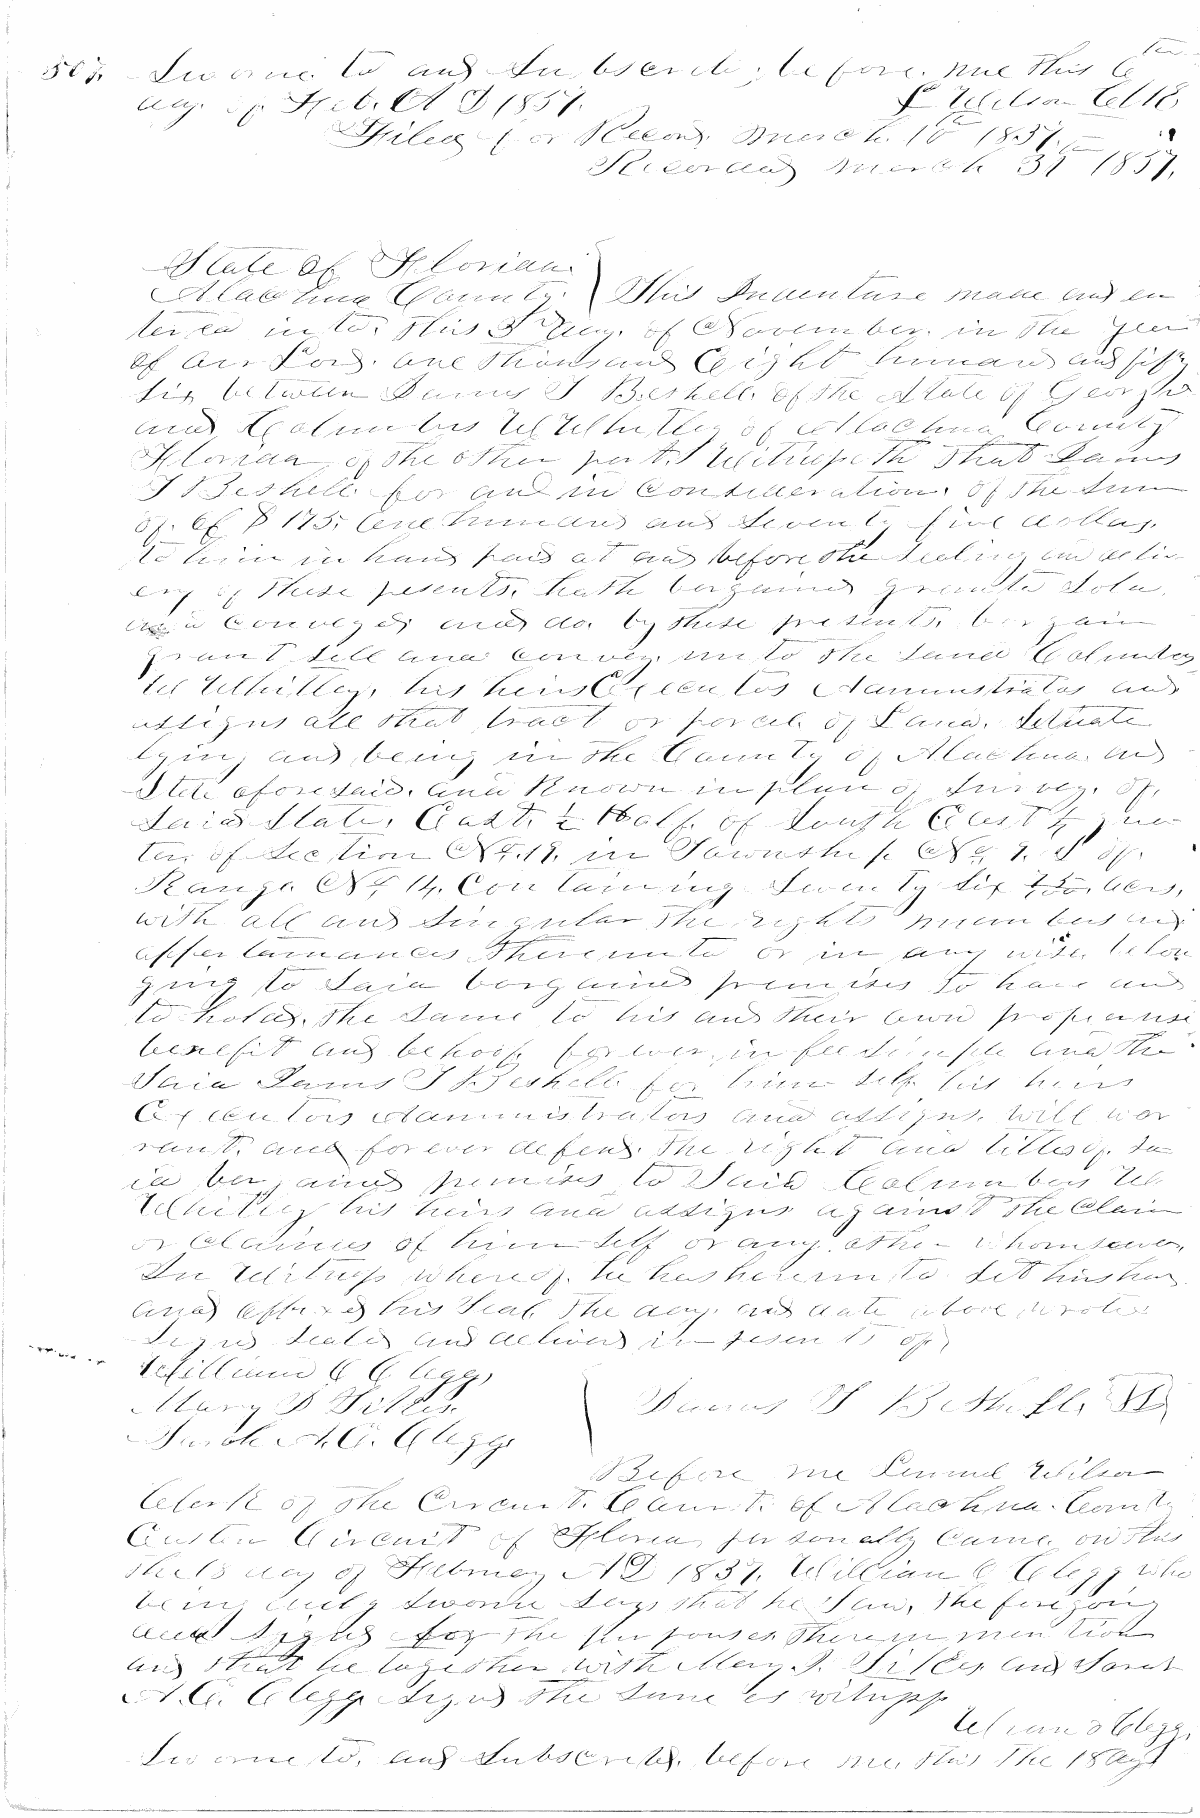 507. Sworne to and Subscribe, before me this 6
ten
day of Feb. A D 1857. L Wilson Clk
Filed for Record March 10 1857.
Recorded March 31 1857.
State of Florida
Alachua County. This Indenture made and en
tered into. this 3 day. of November. in the year
of our Lord. one thousand Eight hundred and fifty
six between James T Beshell. of the State of Georgia
and Columbus W Whitley of Alachua County
Florida of the other part. Witnesseth that James
T Beshell. for and in consideration. of the Sum
of. of $175. One hundred and Seventy five dollas.
to him in hand paid at and before the Sealing and deliv
ery of these presents. hath bargained granted Sold.
and conveyed and do. by these presents. bargain
grant sell and convey. unto the said Columbus
W Whitley, his heirs Executos Administratos and
assigns all that tract or parcel of Land. Situate
lying and being in the County of Alachua and
State aforesaid. and Known in plan of Survey. of.
Said State. East. ½ Half. of South East ¼ quar
ter. of Section No. 18. in Township No. 9. S of.
Range No. 14. Containing Seventy Six Acres,
with all and Singular the rights members and
appertainances thereunto or in any wise belon
ging to Said bargained premises To have and
to hold. the Same to his and their own proper use
benefit and behoof forever, in fee Simple and the
Said James T Beshell for him self his heirs
Executors Administrators and assigns. will war
rant. and forever defend. the right and titles of. sa
id bargained premises to Said Columbus W
Whitley his heirs and assigns against the Claim
or claimes of himself or any other whomsoever,
In Witness whereof. he has hereunto Set his han
and affixed his Seal the day. and date above wrote
Signed Sealed and delivered in presents of
William C Clegg,
Mary J Sikes. James T Bethell.
Sarah A. E. Clegg
Before me Lemuel Wilson
Clerk of the Circuit. Court. of Alachua. County
Eastern Circuit of Florida personally came on this
the 18 day of February A D 1857. William C Clegg who
being duly sworne Says that he Saw, the foregoing
deed Signed for the purposes therein mention
and that he together with Mary J. Sikes and Sarah
A. E. Clegg Signed the Same as witness
William C Clegg.
Sworne to. and Subscribed. before me, this the 18 day